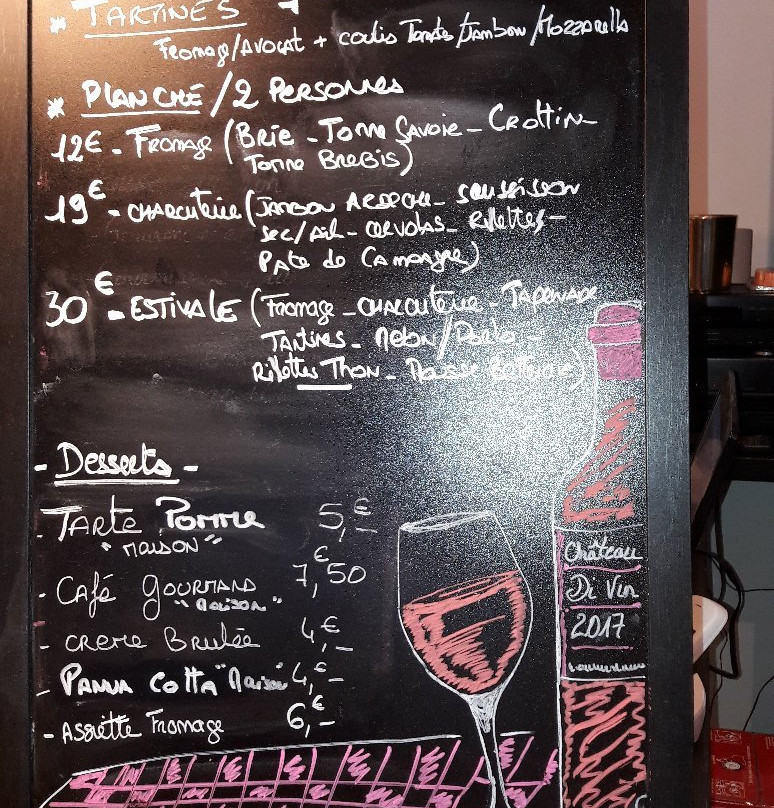 * TARTINES
Fromage/AVOCAT + coulis Tomates/Jambon/Mozzarella
* PLANCHE / 2 PERSONNES
12€ - Fromage (BRIE - Tome Savoie - CROTTIN -
Tome BREBIS)
19€ - CHARCUTERIE (JAMBON ARDECHE - saucisson
sec/Ail - cervolas - Rillettes -
PATE de CAMPAGNE)
30€ - ESTIVALE (Fromage - CHARCUTERIE - TAPENADE
TARTINES - MELON/Porto -
Rillettes THON - Mousse)
- Desserts -
- TARTE POMME 5,€-
"MAISON"
- CAFÉ GOURMAND 7,€50
"MAISON"
- CREME BRULÉE 4,€-
- PANNA COTTA "MAISON" 4,€-
- ASSIETTE FROMAGE 6,€-
Château
Du Vin
2017